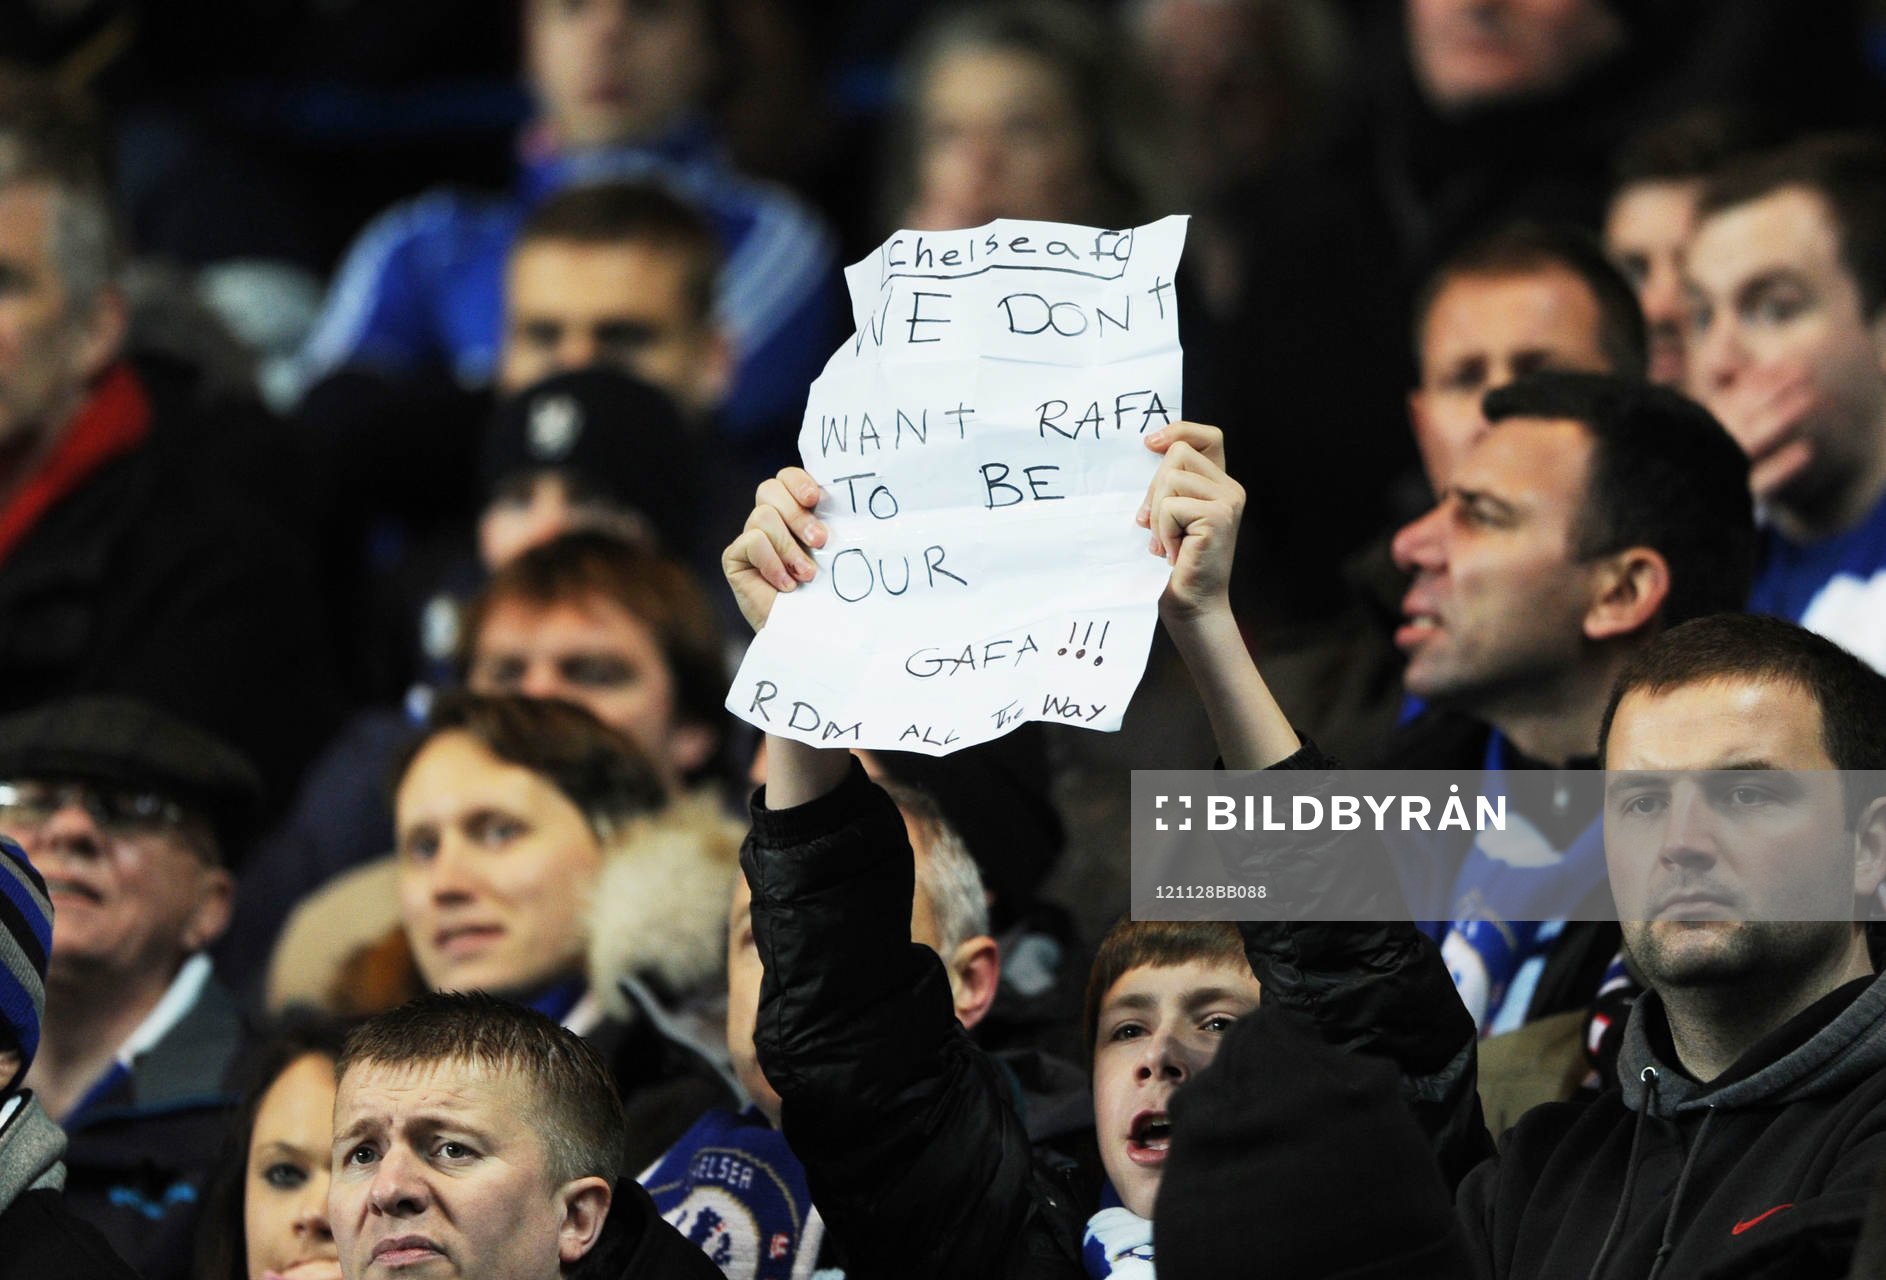 Chelsea FC
WE DON't
WANt RAFA
To BE
OUR
GAFA !!!
RDM ALL The Way
BILDBYRÅN
121128BB088
CHELSEA